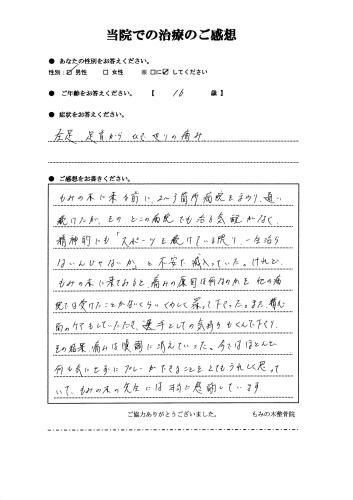 当院での治療のご感想
● あなたの性別をお答えください。
性別：☑ 男性 □ 女性 ※ □に☑ してください
● ご年齢をお答えください。 【 16 歳 】
● 症状をお答えください。
左足 足首から ひざ 周りの痛み
● ご感想をお書きください。
もみの木に来る前に、2〜3箇所病院をまわり、通い
続けたが、その どこの病院でも治る気配がなく、
精神的にも「スポーツを続けている限り、一生治ら
ないんじゃないか」と不安で滅入っていた。けれど、
もみの木に来てみると 痛みの原因は何なのかを 他の病
院では受けたことがないくらいくわしく探って下さった。また、精神
面のケアもしていただき、選手としての気持ちもくんで下さり、
その結果、痛みは順調に消えていった。今ではほとんど
何も気にせずにプレーができることをとてもうれしく思って
いて、もみの木の先生には本当に感謝しています
ご協力ありがとうございました。 もみの木整骨院